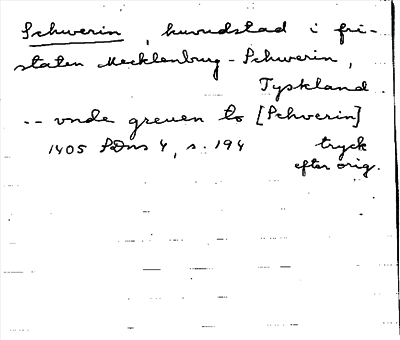 Schwerin, huvudstad i fri-
staten Mecklenburg-Schwerin,
Tyskland.
-- vnde greuen to [Schwerin]
1405 SDns 4, s. 194 tryck
efter orig.